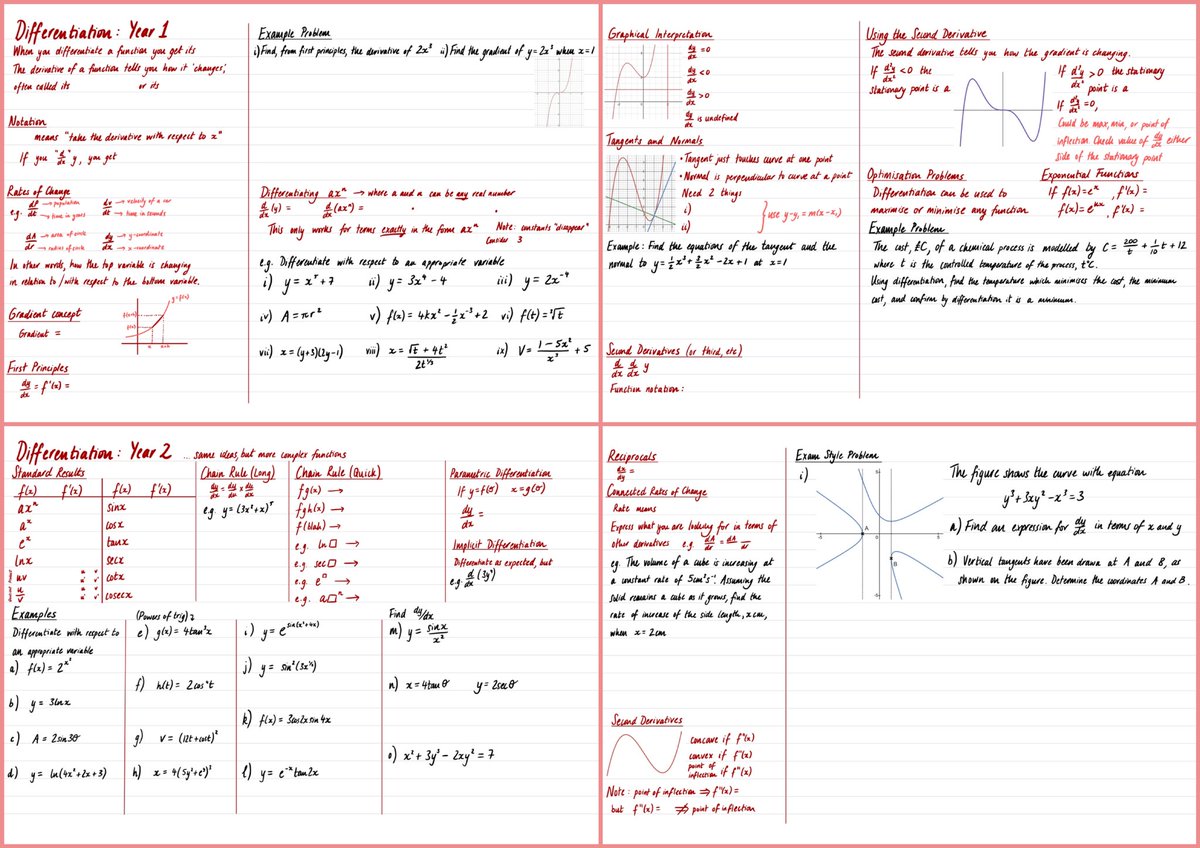 Differentiation: Year 1
When you differentiate a function you get its
The derivative of a function tells you how it 'changes',
often called its or its
Notation
means "take the derivative with respect to x"
If you "d/dx" y, you get
Rates of Change
e.g. dP/dt → population → time in years dv/dt → velocity of a car → time in seconds
dA/dr → area of circle → radius of circle dy/dx → y-coordinate → x-coordinate
In other words, how the top variable is changing
in relation to/with respect to the bottom variable.
Gradient concept
y=f(x)
f(x+h)
f(x)
x x+h
Gradient =
First Principles
dy/dx = f'(x) =
Example Problem
i) Find, from first principles, the derivative of 2x³ ii) Find the gradient of y=2x³ when x=1
Differentiating axⁿ → where a and n can be any real number
d/dx (y) = d/dx (axⁿ) =
This only works for terms exactly in the form axⁿ
Note: constants "disappear"
Consider 3
e.g. Differentiate with respect to an appropriate variable
i) y = x⁵ + 7 ii) y = 3x⁴ - 4 iii) y = 2x⁻⁴
iv) A = πr² v) f(x) = 4kx² - 1/2 x⁻³ + 2 vi) f(t) = ³√t
vii) x = (y+3)(2y-1) viii) x = (√t + 4t²)/(2t^(1/3)) ix) V = (1 - 5x²)/x³ + 5
Graphical Interpretation
dy/dx = 0
dy/dx < 0
dy/dx > 0
dy/dx is undefined
Tangents and Normals
• Tangent just touches curve at one point
• Normal is perpendicular to curve at a point
Need 2 things
i)
ii)
use y-y₁ = m(x-x₁)
Example: Find the equations of the tangent and the
normal to y = 1/2 x³ + 3/2 x² - 2x + 1 at x=1
Second Derivatives (or third, etc)
d/dx d/dx y
Function notation:
Using the Second Derivative
The second derivative tells you how the gradient is changing.
If d²y/dx² < 0 the
stationary point is a
If d²y/dx² > 0 the stationary
point is a
If d²y/dx² = 0,
Could be max, min, or point of
inflection. Check value of dy/dx either
side of the stationary point
Optimisation Problems
Differentiation can be used to
maximise or minimise any function
Exponential Functions
If f(x) = eˣ , f'(x) =
f(x) = eᵏˣ , f'(x) =
Example Problem
The cost, £C, of a chemical process is modelled by C = 200/t + 1/10 t + 12
where t is the controlled temperature of the process, t°C.
Using differentiation, find the temperature which minimises the cost, the minimum
cost, and confirm by differentiation it is a minimum.
Differentiation: Year 2 ...same ideas, but more complex functions
Standard Results
f(x) f'(x) f(x) f'(x)
axⁿ sinx
aˣ cosx
eˣ tanx
lnx secx
uv cotx
u/v cosecx
Chain Rule (Long)
dy/dx = dy/du × du/dx
e.g. y = (3x²+x)⁵
Chain Rule (Quick)
fg(x) →
fgh(x) →
f(blah) →
e.g. ln□ →
e.g. sec□ →
e.g. e^□ →
e.g. a□ⁿ →
Parametric Differentiation
If y=f(θ) x=g(θ)
dy/dx =
Implicit Differentiation
Differentiate as expected, but
e.g. d/dx (3y⁴)
Examples
Differentiate with respect to
an appropriate variable
a) f(x) = 2^(x²)
b) y = 3lnx
c) A = 2sin3θ
d) y = ln(4x²+2x+3)
(Powers of trig)
e) g(x) = 4tan³x
f) h(t) = 2cos⁴t
g) v = (12t+cost)²
h) x = 4(5y²+eʸ)³
i) y = e^(sin(x²+4x))
j) y = sin²(3x^(1/2))
k) f(x) = 3cos2xsin4x
l) y = e⁻ˣtan2x
Find dy/dx
m) y = sinx/x²
n) x = 4tanθ y = 2secθ
o) x² + 3y³ - 2xy² = 7
Reciprocals
dx/dy =
Connected Rates of Change
Rate means
Express what you are looking for in terms of
other derivatives e.g. dA/dr = dA/ /dr
eg. The volume of a cube is increasing at
a constant rate of 5cm³s⁻¹. Assuming the
solid remains a cube as it grows, find the
rate of increase of the side length, xcm,
when x = 2cm
Second Derivatives
concave if f''(x)
convex if f''(x)
point of
inflection if f''(x)
Note: point of inflection ⇒ f''(x) =
but f''(x) = ⇏ point of inflection
Exam Style Problem
i)
5
-5
5
-5
A
B
The figure shows the curve with equation
y³ + 3xy² - x³ = 3
a) Find an expression for dy/dx in terms of x and y
b) Vertical tangents have been drawn at A and B, as
shown on the figure. Determine the coordinates A and B.